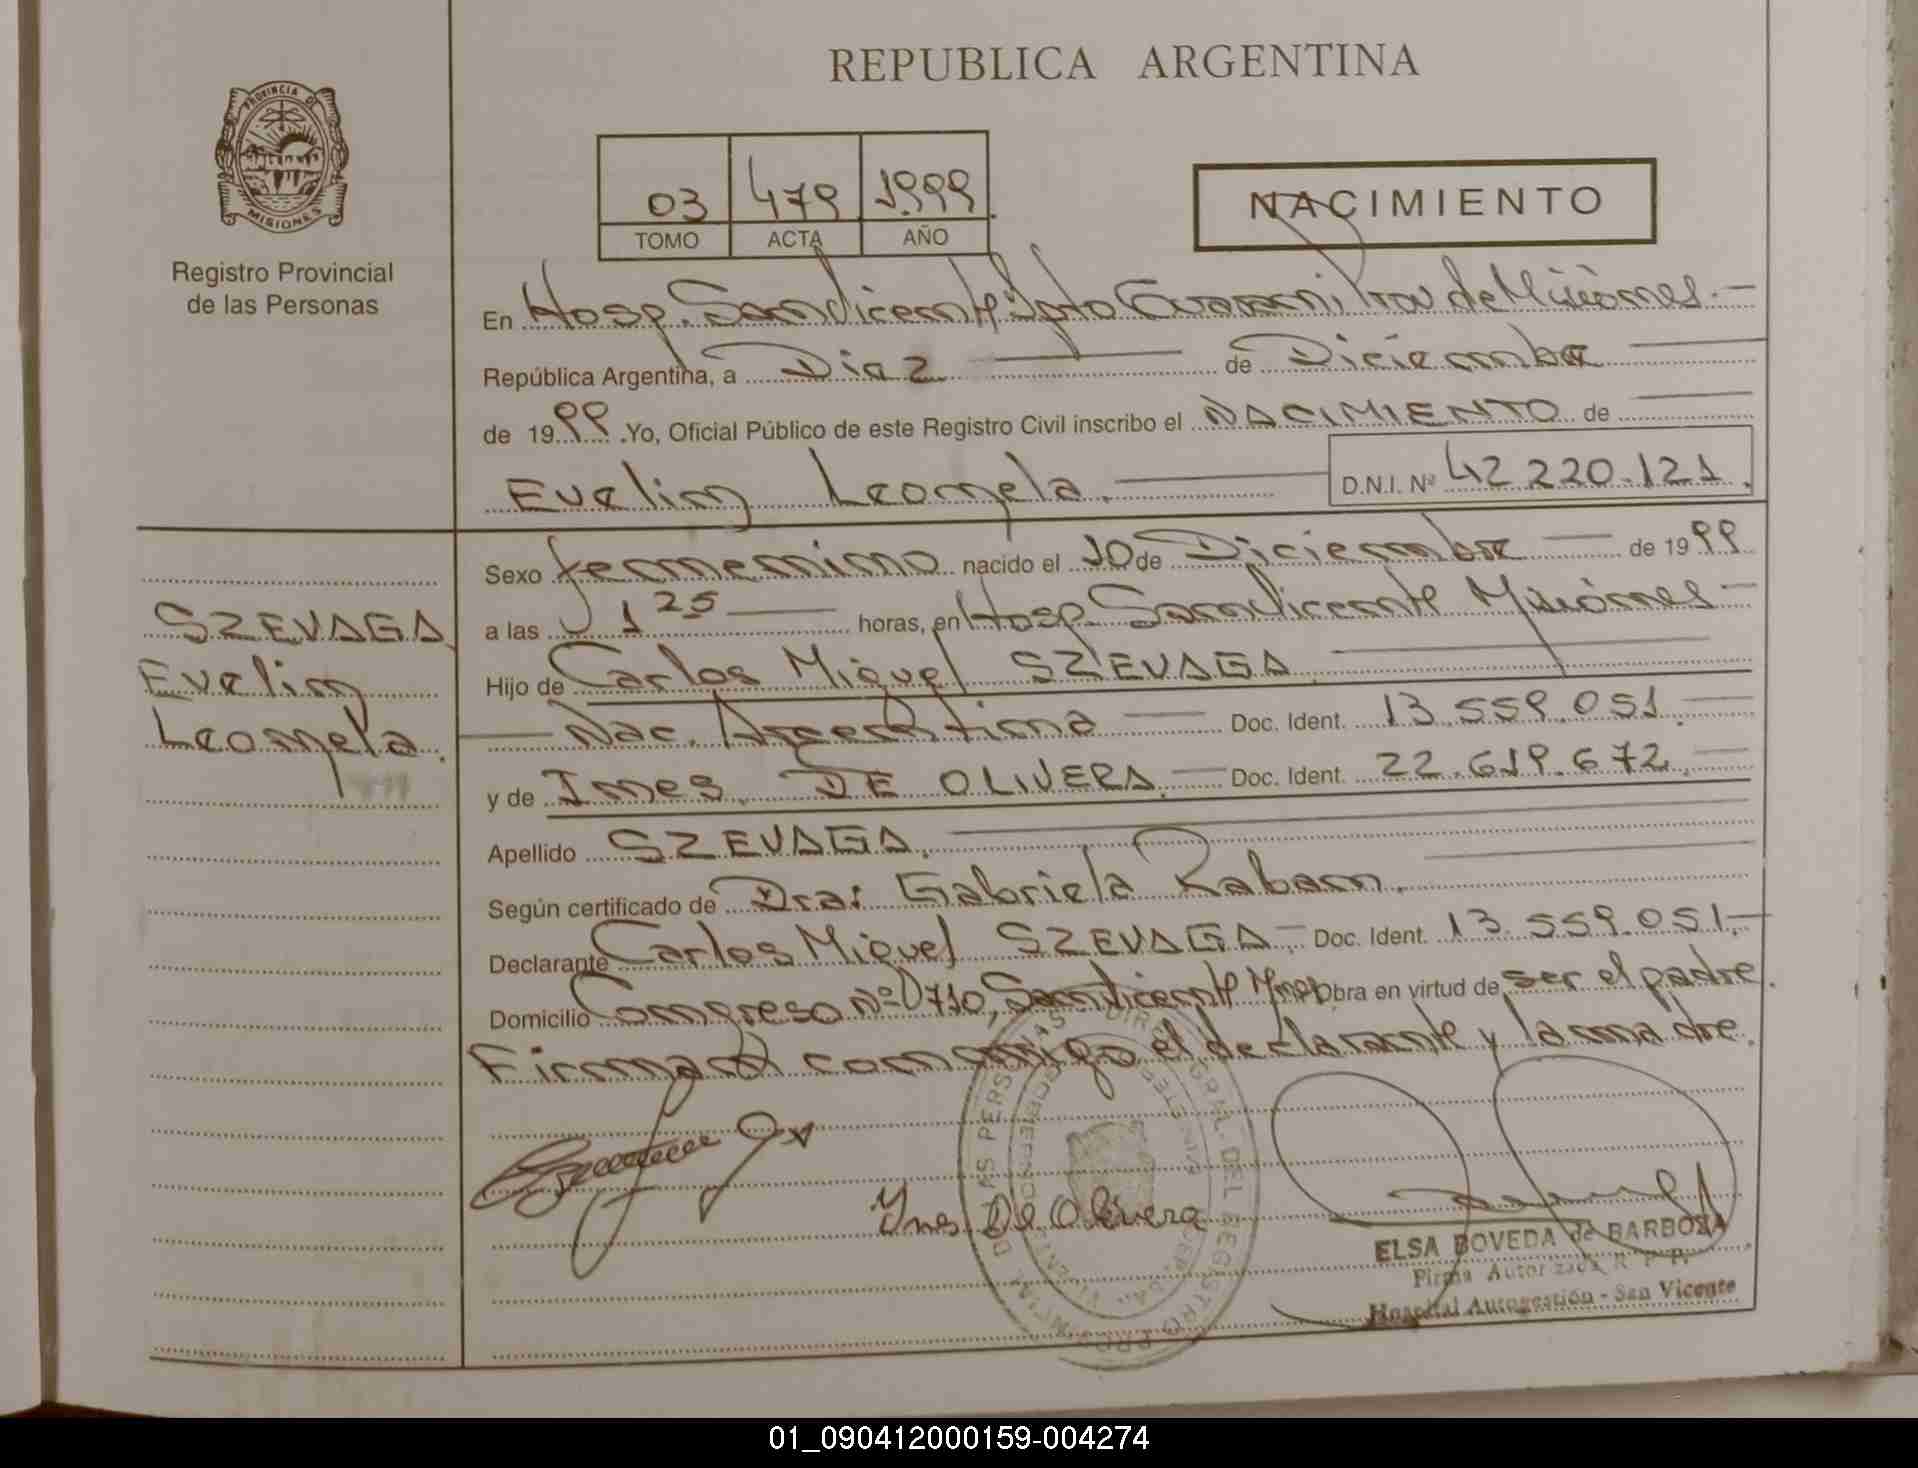 REPUBLICA ARGENTINA
PROVINCIA DE
MISIONES
Registro Provincial
de las Personas
03 479 1999
TOMO ACTA AÑO
NACIMIENTO
En Hosp. San Vicente Dpto Guarani, Prov de Misiones.
República Argentina, a Dia 2 de Diciembre
de 1999 .Yo, Oficial Público de este Registro Civil inscribo el NACIMIENTO de
Evelin Leonela. D.N.I. Nº 42 220.121.
SZEVAGA
Evelin
Leonela.
Sexo femenino nacido el 10 de Diciembre de 1999
a las 1 25 horas, en Hosp. San Vicente Misiones
Hijo de Carlos Miguel SZEVAGA
Nac. Argentina Doc. Ident. 13.559.051.
y de Ines DE OLIVERA. Doc. Ident. 22.619.672.
Apellido SZEVAGA.
Según certificado de Dra: Gabriela Raban.
Declarante Carlos Miguel SZEVAGA. Doc. Ident. 13.559.051.
Domicilio Congreso Nº 710, San Vicente Mnes Obra en virtud de ser el padre.
Firman conmigo el declarante y la madre.
Ines De Olivera
ELSA BOVEDA de BARBOZA
Firma Autorizada R. P. P.
Hospital Autogestión - San Vicente
01_090412000159-004274